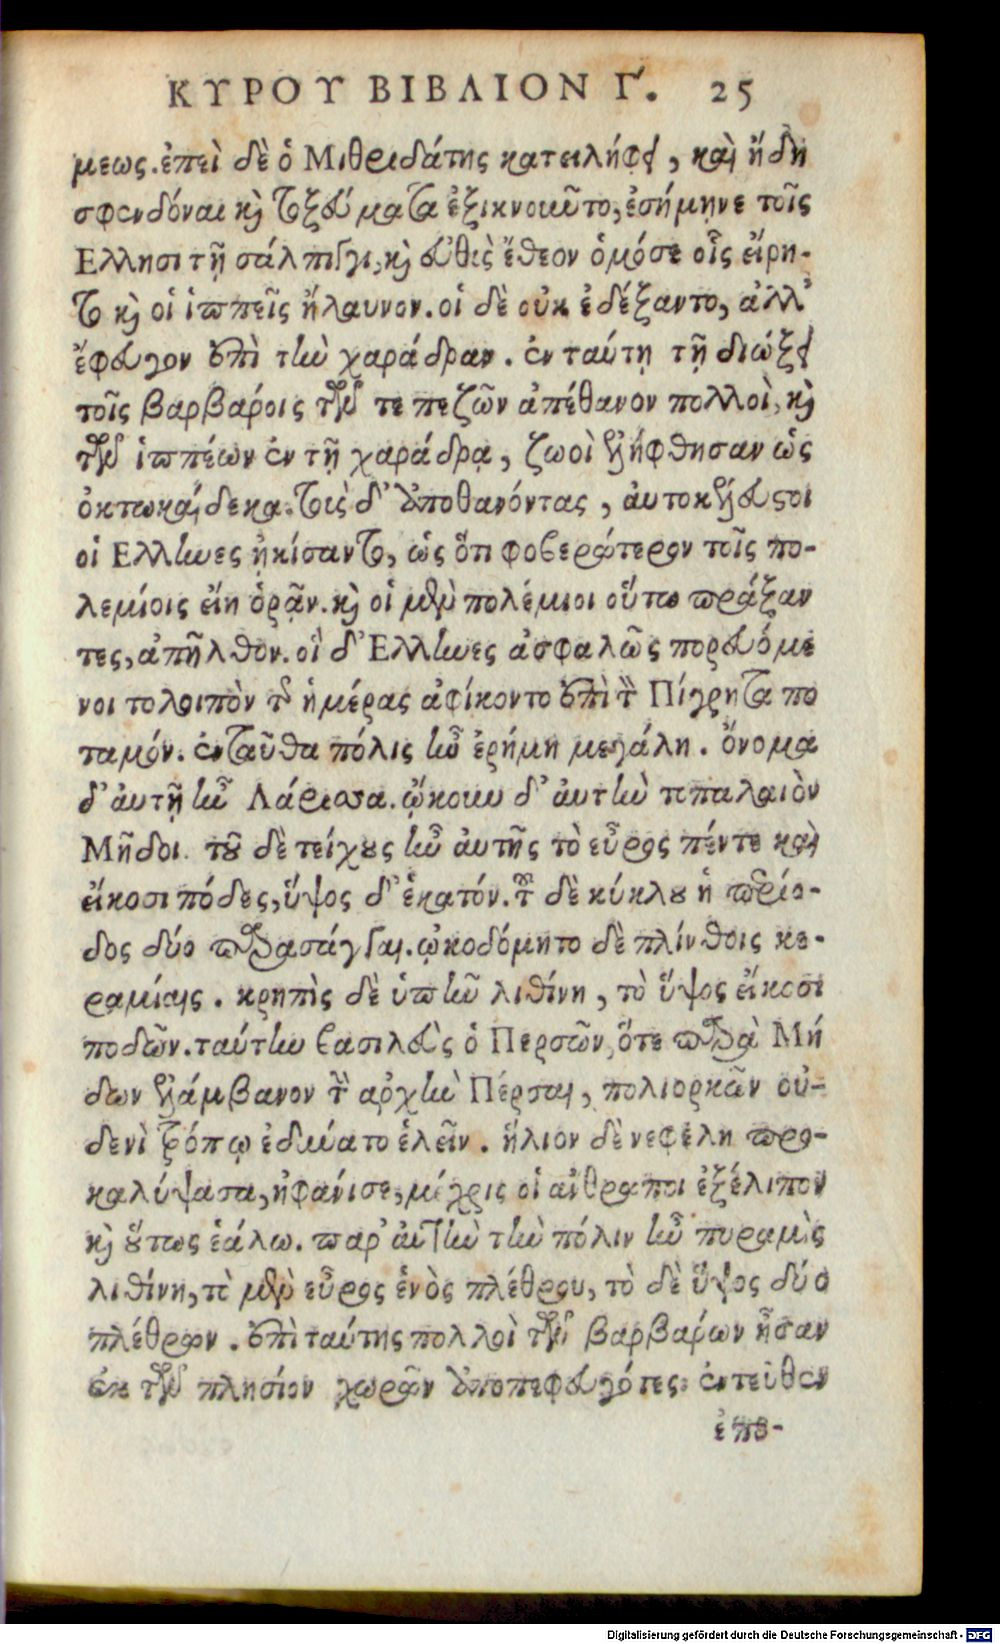 ΚΥΡΟΥ ΒΙΒΛΙΟΝ Γ. 25
μεως. ἐπεὶ δὲ ὁ Μιθριδάτης κατειλήφει, καὶ ἤδη
σφενδόναι καὶ τοξεύματα ἐξικνοιῦτο, ἐσήμηνε τοῖς
Ελλησι τῇ σάλπιγγι, καὶ εὐθὶς ἔθεον ὁμόσε οἷς εἴρη-
το καὶ οἱ ἱππεῖς ἤλαυνον. οἱ δὲ οὐκ ἐδέξαντο, ἀλλ'
ἔφευγον ἐπὶ τὴν χαράδραν. ἐν ταύτῃ τῇ διώξει
τοῖς βαρβάροις τῶν τε πεζῶν ἀπέθανον πολλοὶ, καὶ
τῶν ἱππέων ἐν τῇ χαράδρᾳ, ζωοὶ ἐλήφθησαν ὡς
ὀκτωκαίδεκα. τοὺς δ' ἀποθανόντας, ἀυτοκέλευστοι
οἱ Ελληνες ᾐκίσαντο, ὡς ὅτι φοβερώτερον τοῖς πο-
λεμίοις εἴη ὁρᾷν. καὶ οἱ μὲν πολέμιοι οὕτω πράξαν
τες, ἀπῆλθον. οἱ δ' Ελληνες ἀσφαλῶς πορευόμε
νοι τολοιπὸν τῆς ἡμέρας ἀφίκοντο ἐπὶ τὸν Πίγρητα πο
ταμόν. ἐνταῦθα πόλις ἦν ἐρήμη μεγάλη. ὄνομα
δ' ἀυτῇ ἦν Λάρισσα. ᾤκουν δ' ἀυτὴν τοπαλαιὸν
Μῆδοι. τοῦ δὲ τείχους ἦν ἀυτῆς τὸ εὖρος πέντε καὶ
εἴκοσι πόδες, ὕψος δ' ἑκατόν. τοῦ δὲ κύκλου ἡ περίο-
δος δύο παρασάγγαι. ᾠκοδόμητο δὲ πλίνθοις κε-
ραμίαις. κρηπὶς δὲ ὑπῆν λιθίνη, τὸ ὕψος εἴκοσι
ποδῶν. ταύτην βασιλεὺς ὁ Περσῶν, ὅτε παρὰ Μή
δων ἐλάμβανον τὴν αρχὴν Πέρσαι, πολιορκῶν οὐ-
δενὶ τρόπῳ ἐδύνατο ἑλεῖν. ἥλιον δὲ νεφέλη προ-
καλύψασα, ἠφάνισε, μέχρις οἱ ἄνθρωποι ἐξέλιπον
καὶ οὕτως ἑάλω. παρ' ἀυτὴν τὴν πόλιν ἦν πυραμὶς
λιθίνη, τὸ μὲν εὖρος ἑνὸς πλέθρου, τὸ δὲ ὕψος δύο
πλέθρων. ἐπὶ ταύτης πολλοὶ τῶν βαρβάρων ἦσαν
ἐκ τῶν πλησίον χωρῶν ἀποπεφευγότες. ἐντεῦθεν
ἐπο-
Digitalisierung gefördert durch die Deutsche Forschungsgemeinschaft - DFG